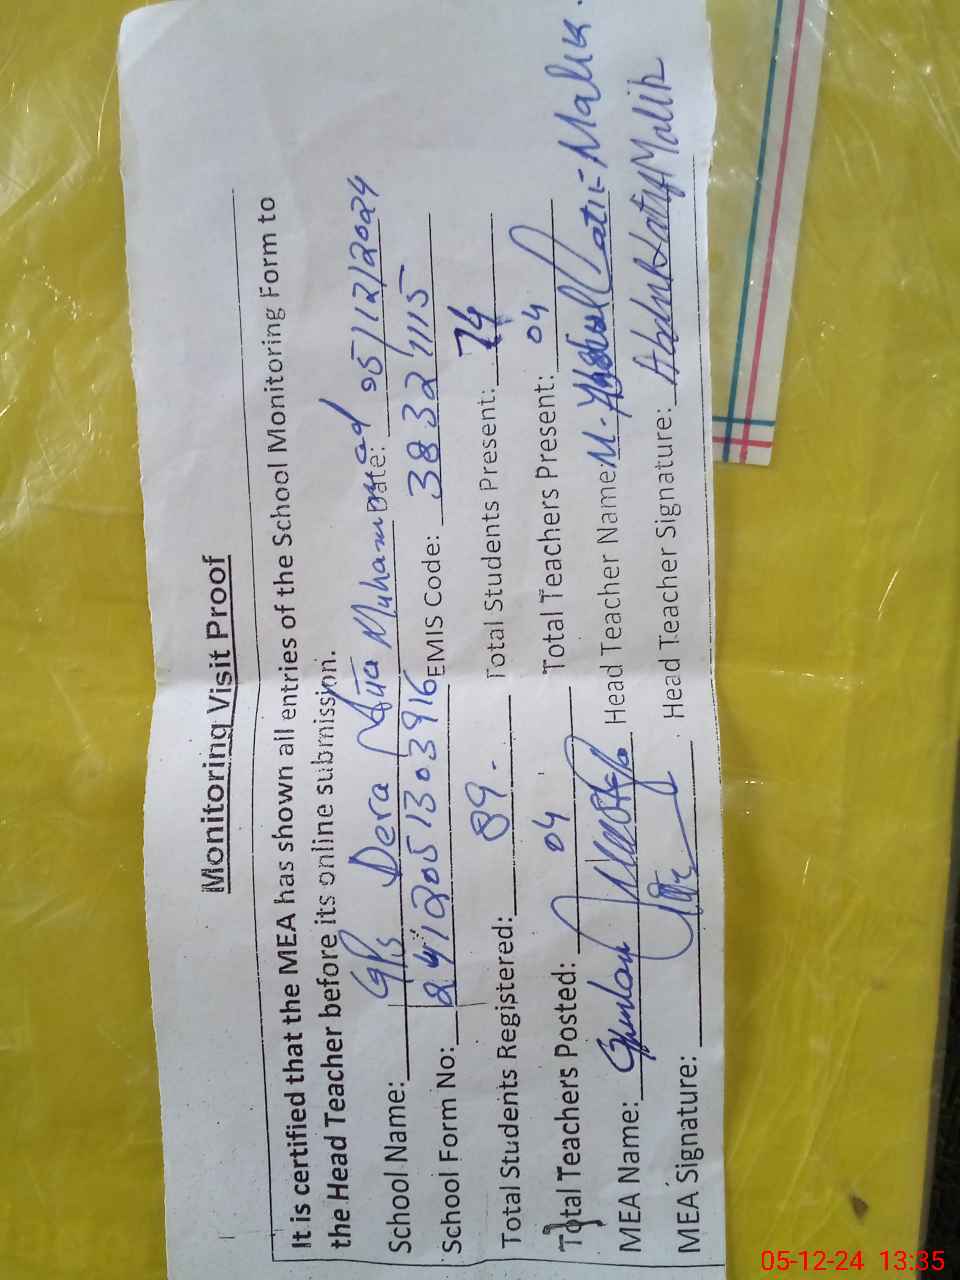 Monitoring Visit Proof
It is certified that the MEA has shown all entries of the School Monitoring Form to
the Head Teacher before its online submission.
School Name: GPS Dera Atta Muhammad Date: 05/12/2024
School Form No: 2412051303916 EMIS Code: 38321115
Total Students Registered: 89- Total Students Present: 74
Total Teachers Posted: 04 Total Teachers Present: 04
MEA Name: Ghulam Mustafa Head Teacher Name: M. Abdul Latif Malik.
MEA Signature: Head Teacher Signature: Abdul Latif Malik
05-12-24 13:35